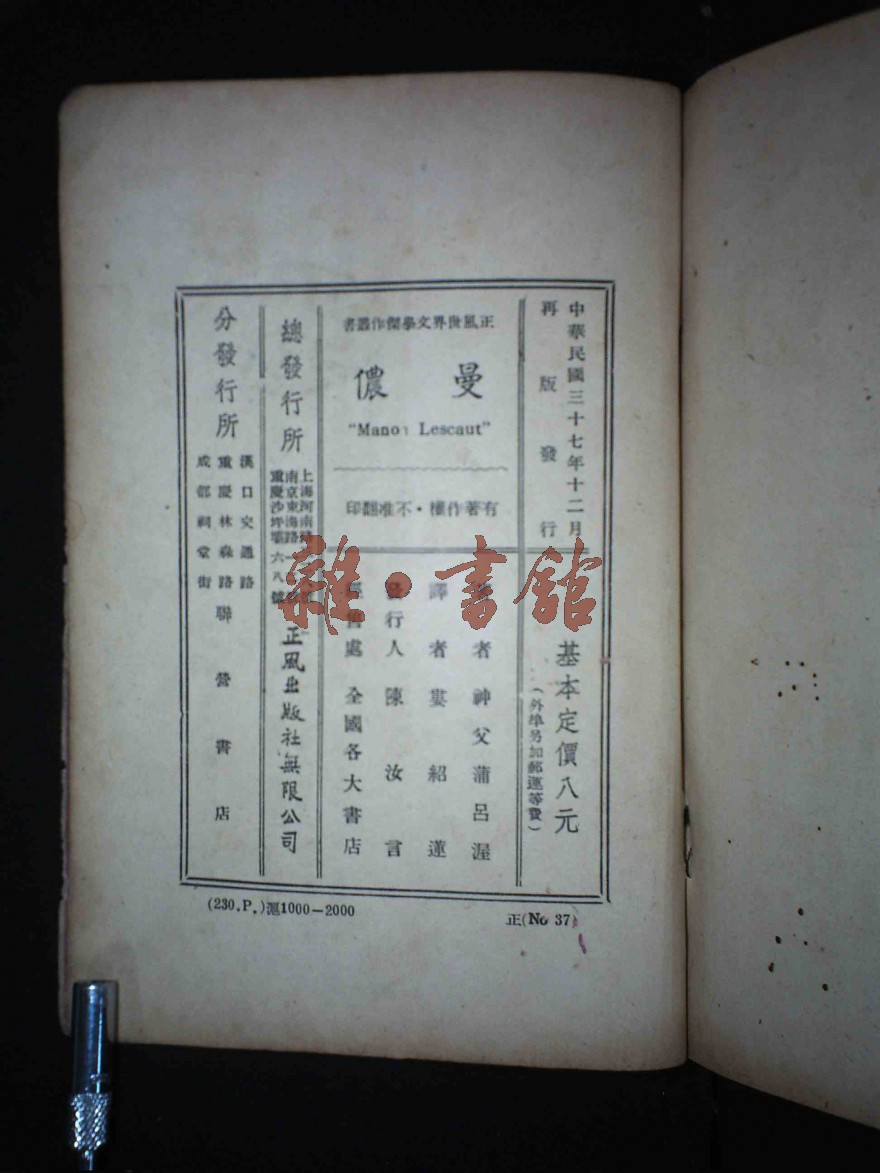 中華民國三十七年十二月
再版發行
基本定價八元
（外埠另加郵運等費）
正風世界文學傑作叢書
曼儂
"Mano Lescaut"
有著作權・不准翻印
者 神父蒲呂渥
譯者 婁紹蓮
發行人 陳汝言
處 全國各大書店
總發行所
上海河南
南京東海路
重慶沙坪壩六八號
正風出版社無限公司
分發行所
漢口交通路
重慶林森路
成都祠堂街
聯營書店
(230.P.)滬1000—2000
正(No 37)
雜・書館